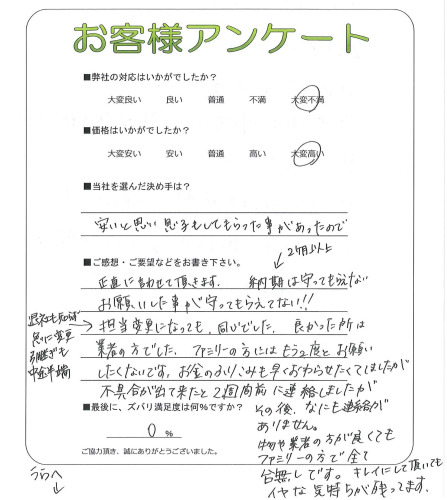 お客様アンケート
■弊社の対応はいかがでしたか?
大変良い 良い 普通 不満 大変不満
■価格はいかがでしたか?
大変安い 安い 普通 高い 大変高い
■当社を選んだ決め手は?
安いと思い息子もしてもらった事があったので
■ご感想・ご要望などをお書き下さい。
2ヶ月以上
正直に言わせて頂きます。 納期は守ってもらえない
お願いした事が守ってもらえてない!!
急に変更
引継ぎも
中途半端
担当変更になっても、同じでした。良かった所は
業者の方でした。ファミリーの方にはもう2度とお願い
したくないです。お金のふりこみも早くおわらせたくてしましたが
不具合が出て来たと2週間前に連絡しましたが
■最後に、ズバリ満足度は何%ですか?
0 %
その後、なにも連絡が
ありません。
物や業者の方が良くても
ファミリーの方で全て
台無しです。キレイにして頂いても
イヤな気持ちが残ってます。
ご協力頂き、誠にありがとうございました。
うらへ